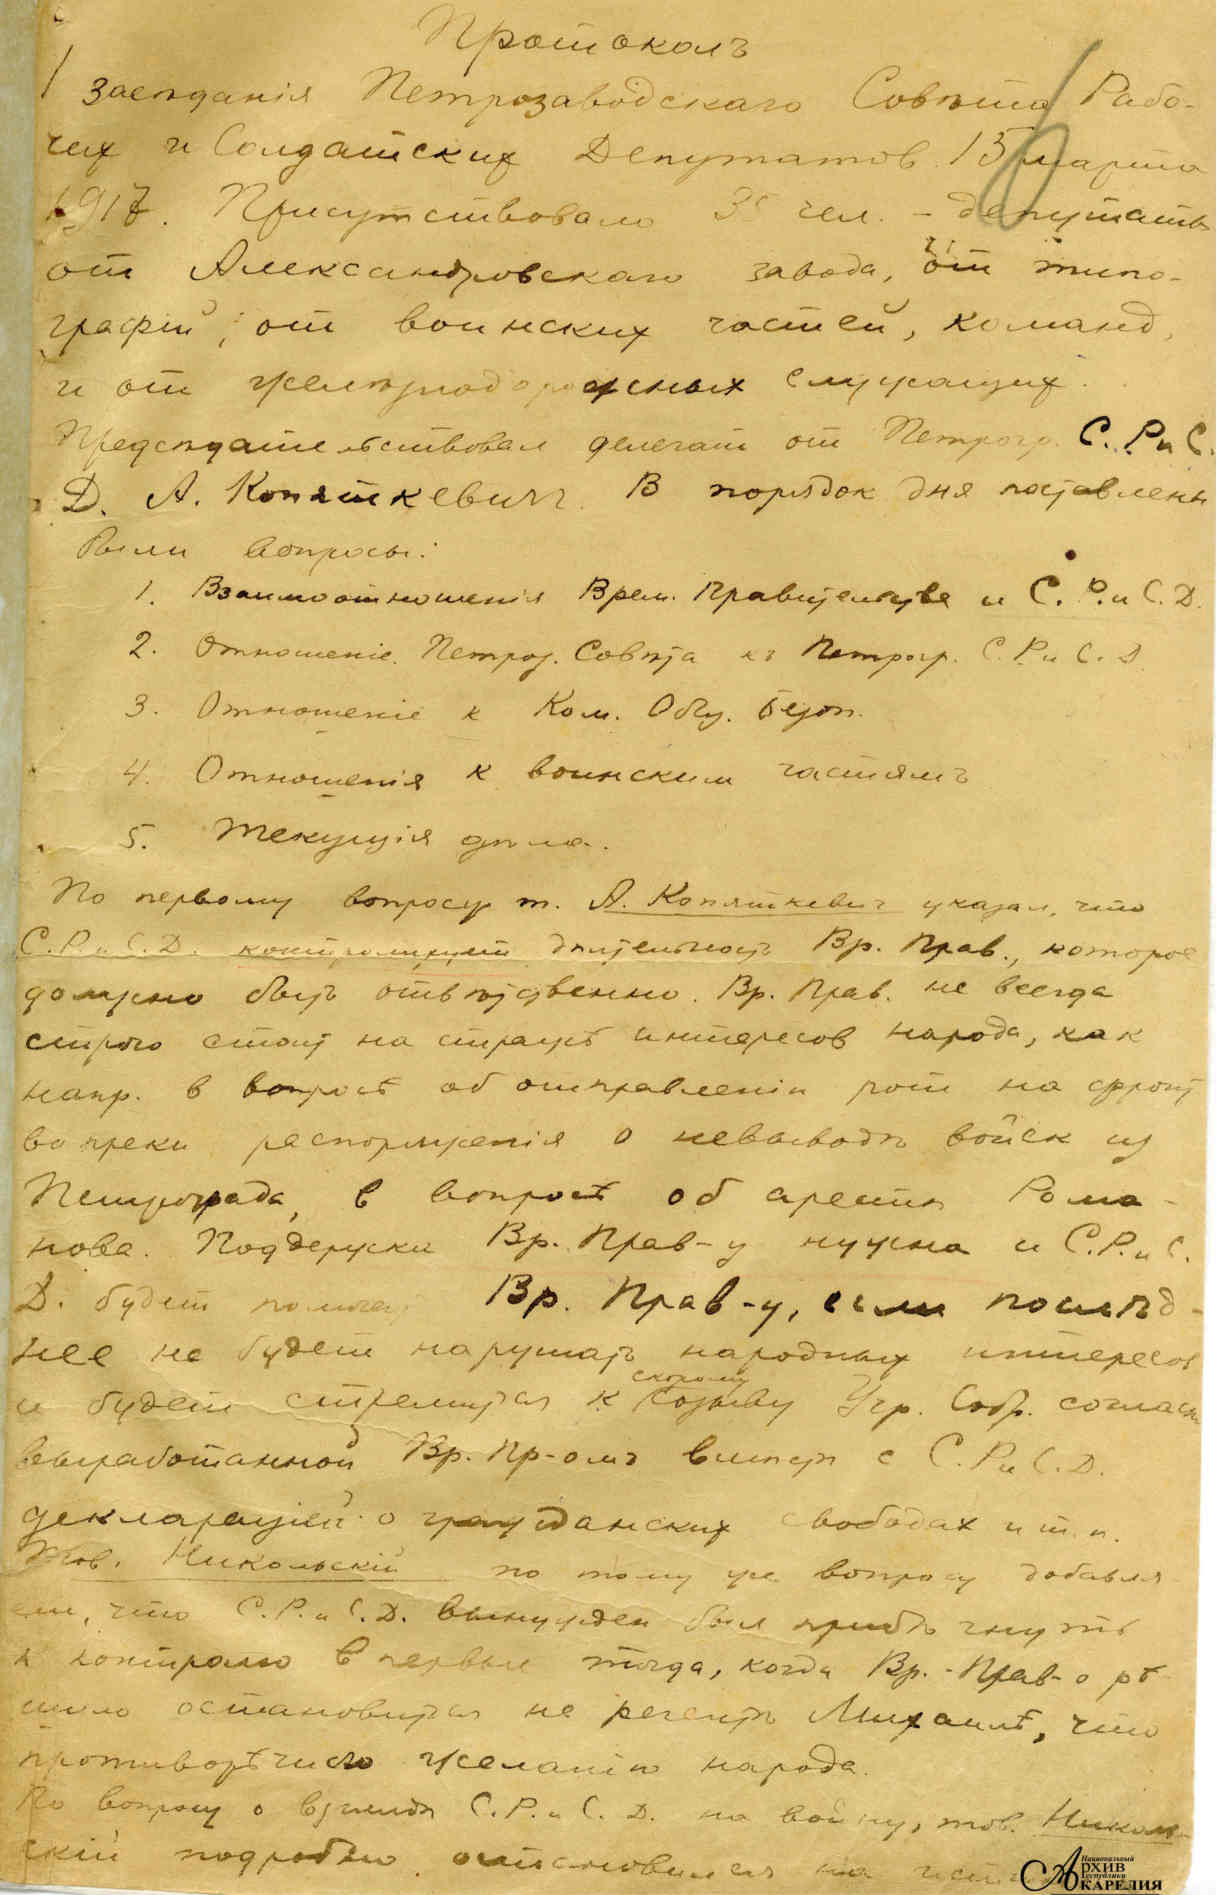 Протоколъ
Засѣданія Петрозаводскаго Совѣта Рабо-
чих и Солдатских Депутатов 15 марта
1917. Присутствовало 35 чел. - депутаты
от Александровскаго завода, от типо-
графій, от воинских частей, команд,
и от желѣзнодорожных служащих.
Предсѣдательствовал делегат от Петрогр. С. Р. и С.
Д. А. Копяткевич. В порядок дня поставлены
были вопросы:
1. Взаимоотношенія Врем. Правительства и С. Р. и С. Д.
2. Отношеніе Петроз. Совѣта къ Петрогр. С. Р. и С. Д.
3. Отношеніе к Ком. Общ. Безоп.
4. Отношенія к воинским частямъ
5. Текущія дѣла.
По первому вопросу т. А. Копяткевич указал, что
С. Р. и С. Д. контролирует дѣятельность Вр. Прав., которое
должно быть отвѣтственно. Вр. Прав. не всегда
строго стоит на стражѣ интересов народа, как
напр. в вопросѣ об отправленіи рот на фронт
вопреки распоряженія о невыводѣ войск из
Петрограда, в вопросѣ об арестѣ Рома-
нова. Поддержка Вр. Прав-у нужна и С. Р. и С.
Д. будет помогать Вр. Прав-у, если послѣд-
нее не будет нарушать народных интересов
и будет стремиться к скорому созыву Учр. Собр. согласно
выработанной Вр. Пр-омъ вмѣстѣ с С. Р. и С. Д.
декларацией о гражданских свободах и т. п.
Тов. Никольскій по тому же вопросу добавля-
ет, что С. Р. и С. Д. вынужден был прибѣгнуть
к контролю впервые тогда, когда Вр. - Прав-о рѣ-
шило остановиться на регентѣ Михаилѣ, что
противорѣчило желанію народа.
По вопросу о взглядѣ С. Р. и С. Д. на войну, тов. Николь-
скій подробно остановился на
Национальный
Архив
Республики
Карелия